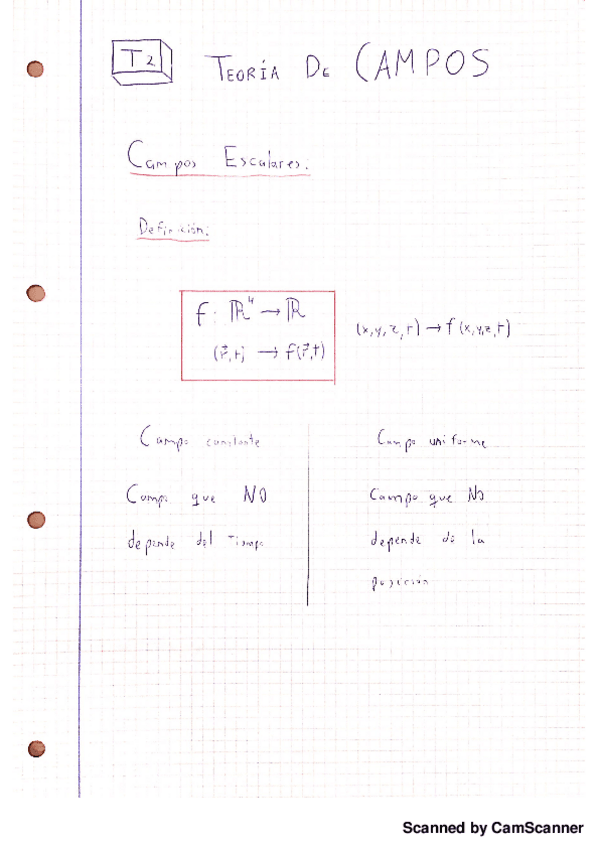 T2 TEORÍA DE CAMPOS
Campos Escalares:
Definición:
f: ℝ⁴ → ℝ
(r⃗,t) → f(r⃗,t)
(x,y,z,t) → f(x,y,z,t)
Campo constante
Campo que NO
depende del tiempo
Campo uniforme
Campo que NO
depende de la
posición
Scanned by CamScanner